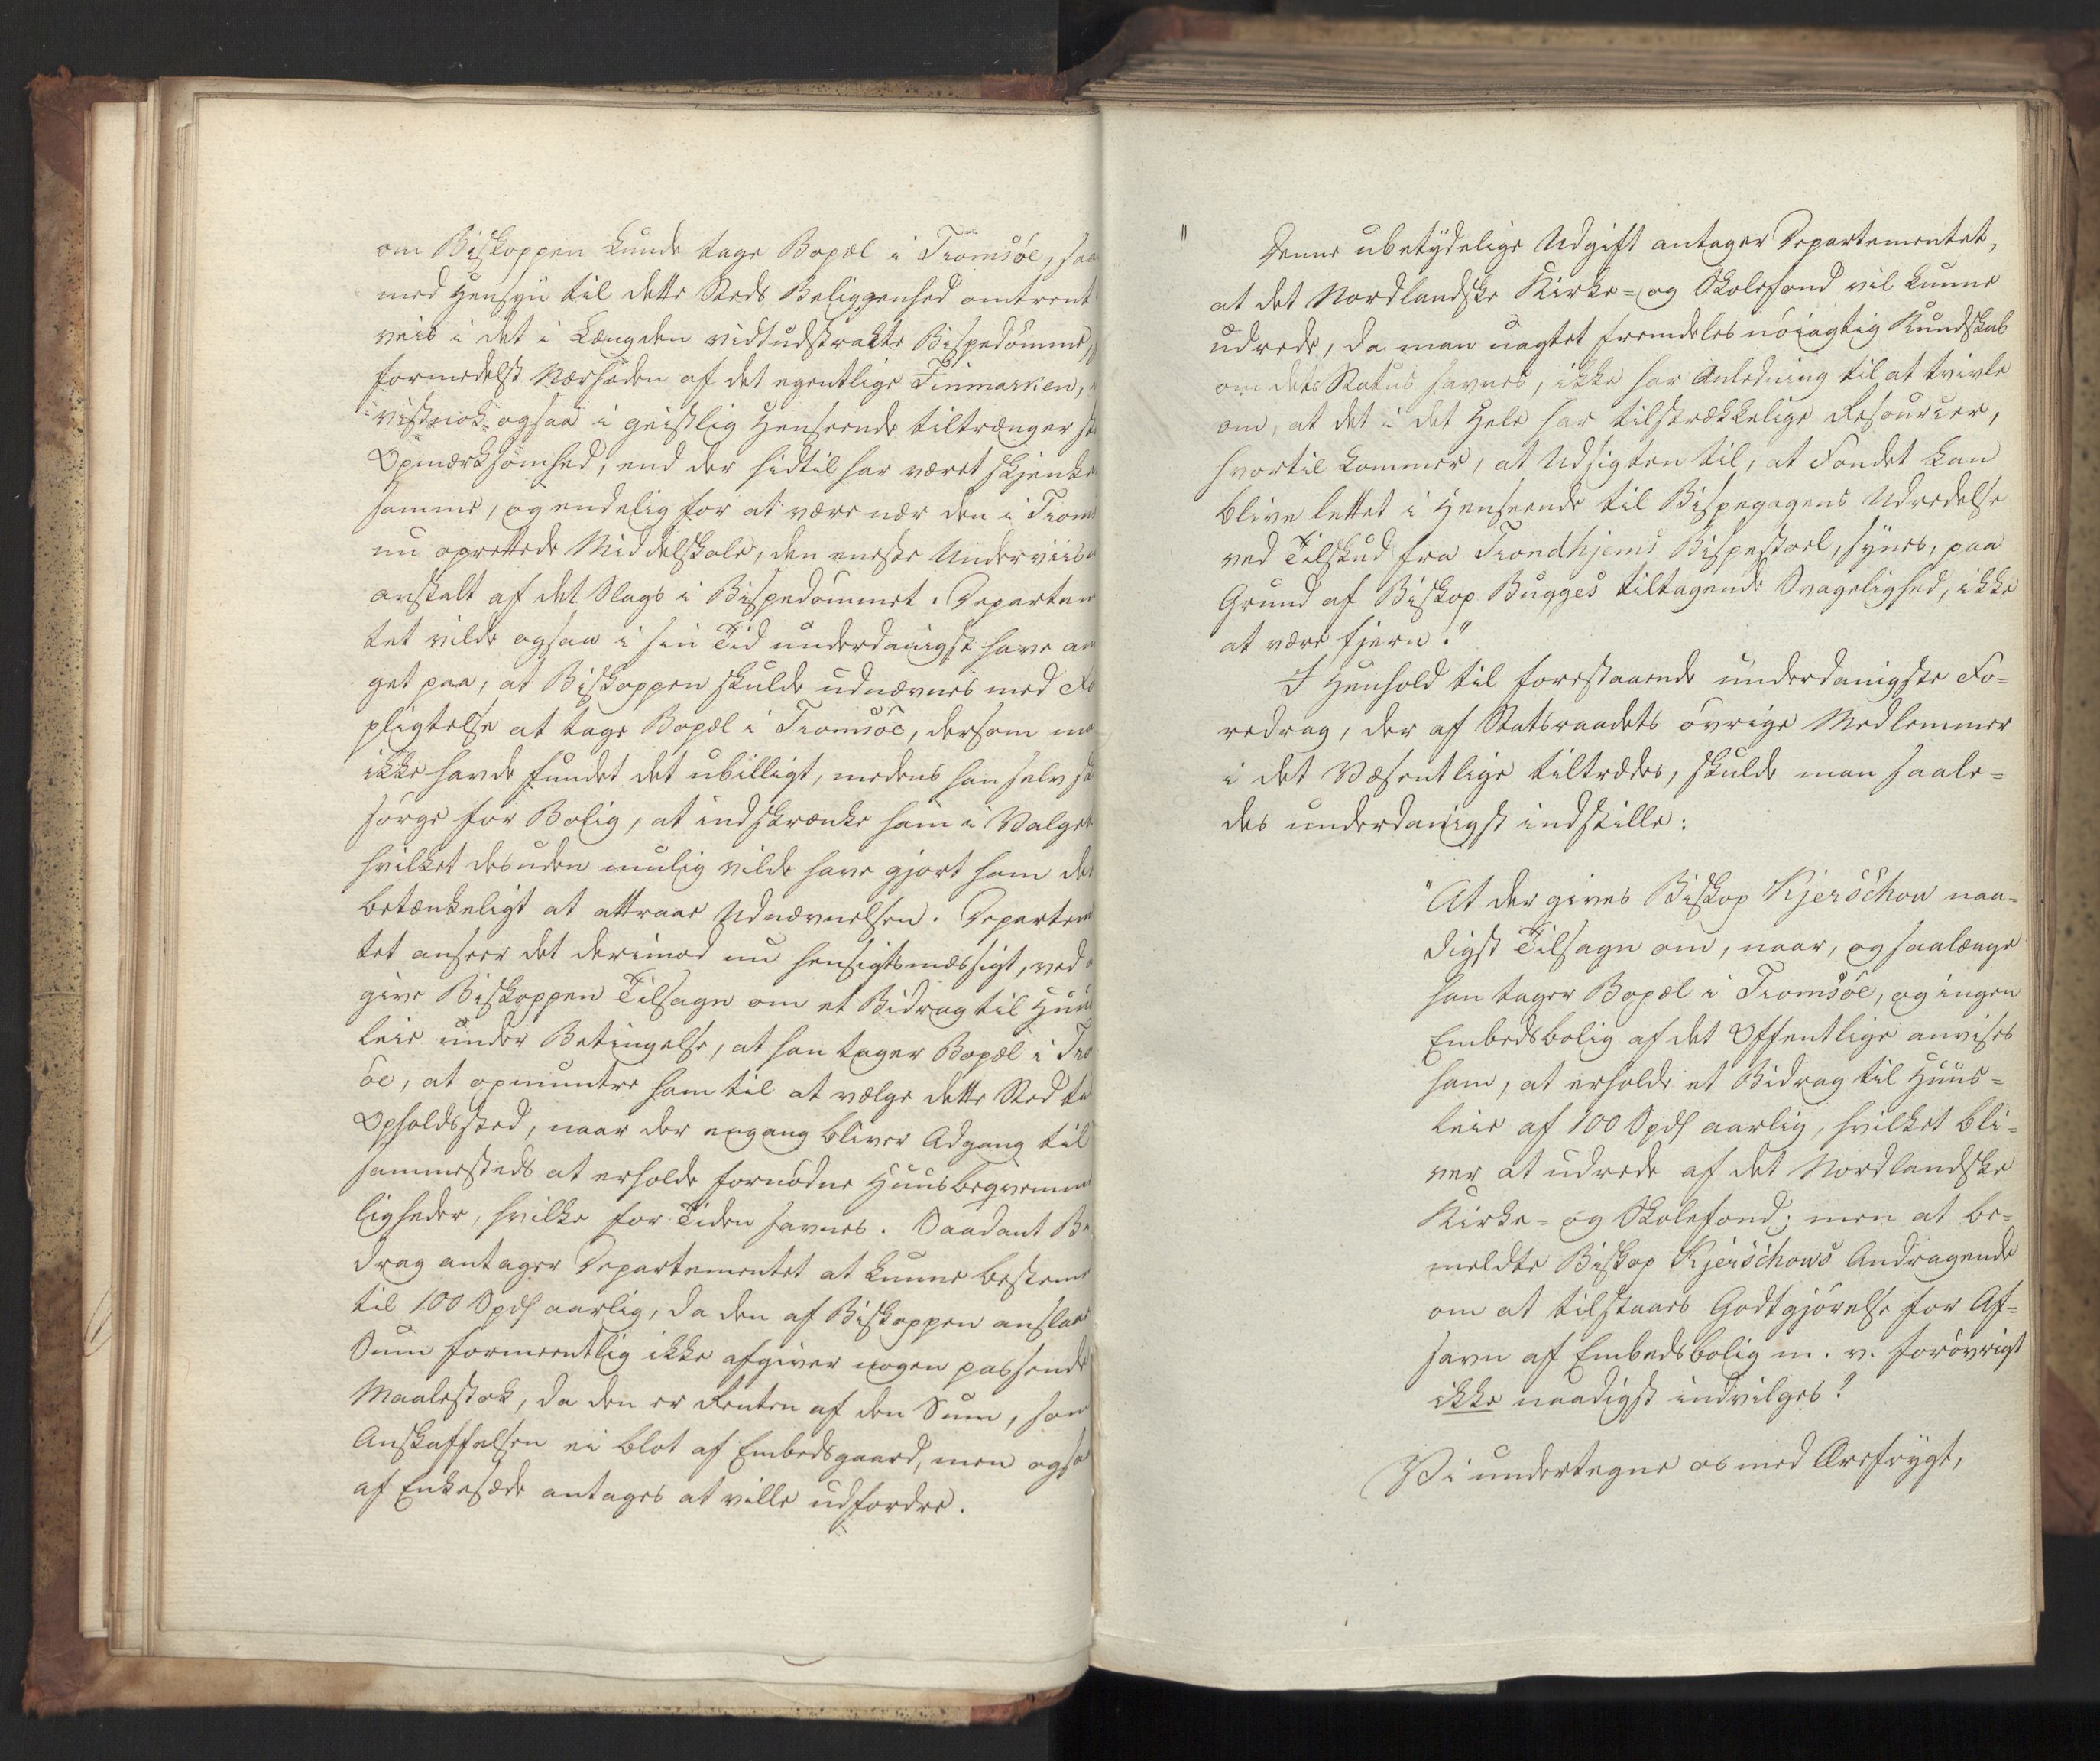 om Biskoppen kunde tage Bopæl i Tromsöe, saa
med Hensyn til dette Steds Beliggenhed omtrent
veis i det i Længden vidtudstrakte Bispedömme,
formedelst Nærheden af det egentlige Finmarken,
vistnok ogsaa i geistlig Henseende tiltrænger st
Opmærksomhed, end der hidtil har været skjenke
samme, og endelig for at være nær den i Troms
nu oprettede Middelskole, den eneste Underviis
anstalt af det Slags i Bispedömmet. Departem
tet vilde ogsaa i sin Tid underdanigst have an
get paa, at Biskoppen skulde udnævnes med Fo
pligtelse at tage Bopæl i Tromsöe, dersom ma
ikke havde fundet det ubilligt, medens han selv sk
sörge for Bolig, at indskrænke ham i Valget
hvilket desuden mulig vilde have gjort ham det
betænkeligt at attraae Udnævnelsen. Departem
tet anseer det derimod nu hensigtsmæssigt, ved
give Biskoppen Tilsagn om et Bidrag til Huus
leie under Betingelse, at han tager Bopæl i Tro
öe, at opmuntre ham til at vælge dette Sted til
Opholdssted, naar der engang bliver Adgang til
sammesteds at erholde fornödne Huusbeqvemme
ligheder, hvilke for Tiden savnes. Saadant Bi
drag antager Departementet at kunne bestemme
til 100 Spd aarlig, da den af Biskoppen anslaae
Sum formeentlig ikke afgiver nogen passende
Maalestok, da den er Renten af den Sum, som
Anskaffelsen ei blot af Embedsgaard, men ogsaa
af Enkesæde antages at ville udfordre.
" Denne ubetydelige Udgift antager Departementet,
at det Nordlandske Kirke- og Skolefond vil kunne
udrede, da man uagtet fremdeles nöiagtig Kundskab
om dets Status savnes, ikke har Anledning til at tvivle
om, at det i det Hele har tilstrækkelige Resourcer,
hvortil kommer, at Udsigten til, at Fondet kan
blive lettet i Henseende til Bispegagens Udredelse
ved Tilskud fra Trondhjems Bispestoel, synes, paa
Grund af Biskop Bugges tiltagende Svagelighed, ikke
at være fjern."
I Henhold til forestaaende underdanigste Fo-
redrag, der af Statsraadets övrige Medlemmer
i det Væsentlige tiltrædes, skulde man saale-
des underdanigst indstille:
"At der gives Biskop Kjerschow naa-
digst Tilsagn om, naar, og saalænge
han tager Bopæl i Tromsöe, og ingen
Embedsbolig af det Offentlige anvises
ham, at erholde et Bidrag til Huus-
leie af 100 Spd aarlig, hvilket bli-
ver at udrede af det Nordlandske
Kirke- og Skolefond; men at be-
meldte Biskop Kjerschows Andragende
om at tilstaaes Godtgjörelse for Af-
savn af Embedsbolig m. v. forövrigt
ikke naadigst indvilges."
Vi undertegne os med Ærefrygt,